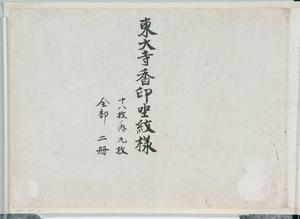 東大寺香印坐紋様
十八枚ノ内九枚
全部二册